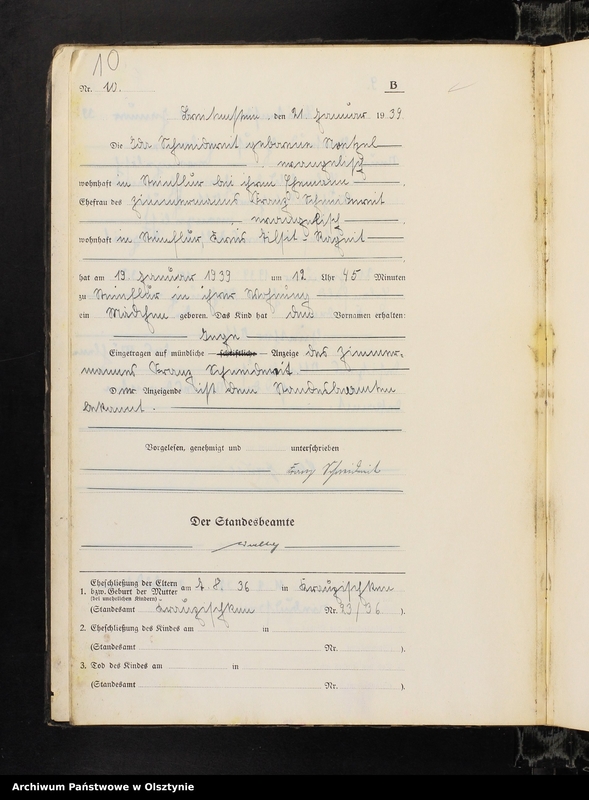 10
Nr. 10. B
, den 21 Januar 1939
Die Ida Schneidereit geborene
evangelisch
wohnhaft in Steinflur bei ihrem Ehemann
Ehefrau des Zimmermanns Franz Schneidereit
evangelisch
wohnhaft in Steinflur, Kreis Tilsit-Ragnit
hat am 19. Januar 1939 um 12 Uhr 45 Minuten
zu Steinflur in ihrer Wohnung
ein Mädchen geboren. Das Kind hat den Vornamen erhalten:
Eingetragen auf mündliche – schriftliche – Anzeige des Zimmer-
mannes Franz Schneidereit
Der Anzeigende ist dem Standesbeamten
bekannt.
Vorgelesen, genehmigt und unterschrieben
Franz Schneidereit
Der Standesbeamte
1. Eheschließung der Eltern
bzw. Geburt der Mutter am 8. 36 in
(bei unehelichen Kindern) –
(Standesamt Nr. 23/36 ).
2. Eheschließung des Kindes am in
(Standesamt Nr. ).
3. Tod des Kindes am in
(Standesamt Nr. ).
Archiwum Państwowe w Olsztynie